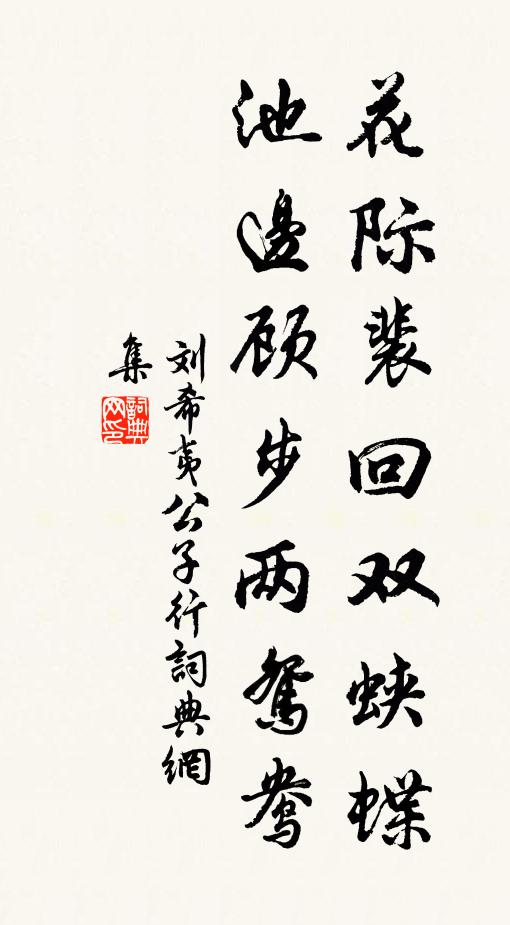 花际裴回双蛱蝶
池邊顾步两鸳鸯
刘希夷公子行詞典網
集
詞典
网印